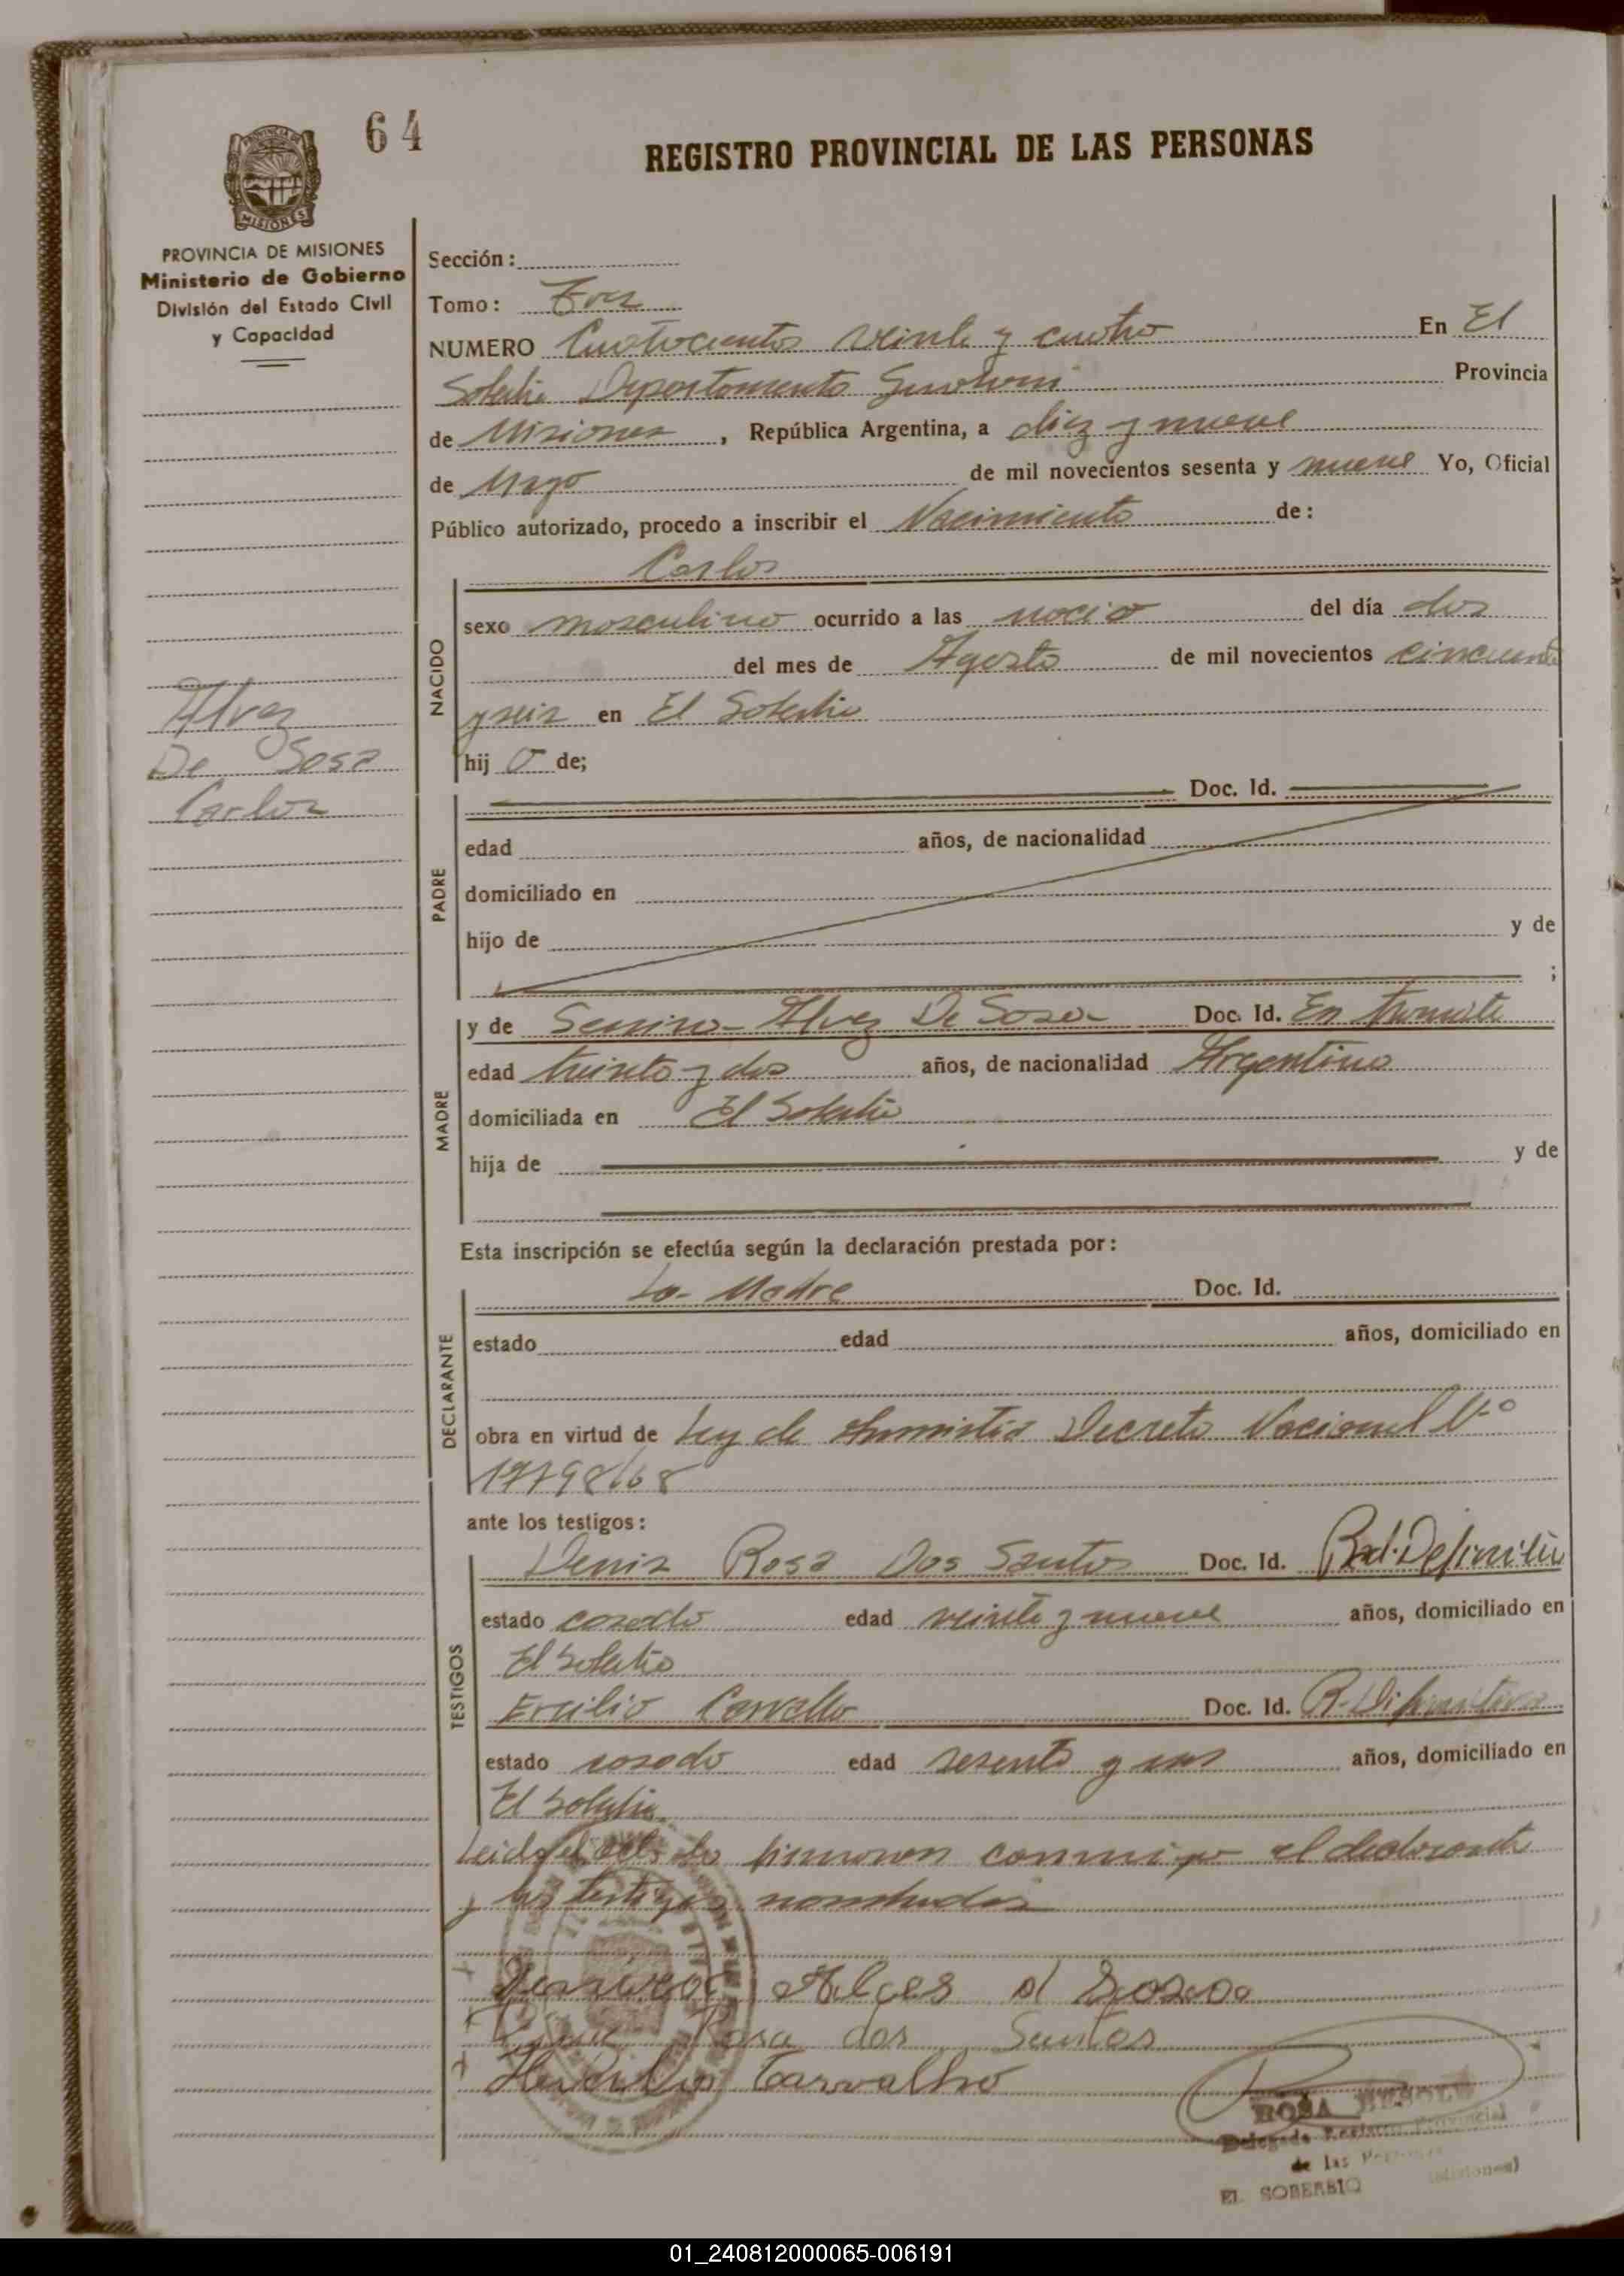 64
REGISTRO PROVINCIAL DE LAS PERSONAS
PROVINCIA DE MISIONES
MISIONES
PROVINCIA DE MISIONES
Ministerio de Gobierno
División del Estado Civil
y Capacidad
Sección:
Tomo: Tres
NUMERO Cuatrocientos veinte y cuatro En El
Soberbio Departamento Guarani Provincia
de Misiones, República Argentina, a diez y nueve
de Mayo de mil novecientos sesenta y nueve Yo, Oficial
Público autorizado, procedo a inscribir el Nacimiento de:
Carlos
NACIDO
sexo masculino ocurrido a las nocio del día dos
del mes de Agosto de mil novecientos cincuenta
y seis en El Soberbio
hij o de;
Alvez
De Sosa
Carlos
PADRE
Doc. Id.
edad años, de nacionalidad
domiciliado en
hijo de y de
;
MADRE
y de Alvez De Sosa Doc. Id. En tramite
edad treinta y dos años, de nacionalidad Argentina
domiciliada en El Soberbio
hija de y de
Esta inscripción se efectúa según la declaración prestada por:
DECLARANTE
La Madre Doc. Id.
estado edad años, domiciliado en
obra en virtud de Ley de Amnistia Decreto Nacional Nº
17798/68
ante los testigos:
TESTIGOS
Deniz Rosa Dos Santos Doc. Id. Rad. Definitiva
estado casado edad veinte y nueve años, domiciliado en
El Soberbio
Ercilio Carvalho Doc. Id. R. Difinitiva
estado casado edad sesenta y años, domiciliado en
El Soberbio
Leida el acta la firmaron conmigo el declarante
y los testigos nombrados
Alves d Soza
Rosa dos Santos
Carvalho
ROSA
Delegada Registro Provincial
de las Personas
EL SOBERBIO (Misiones)
01_240812000065-006191